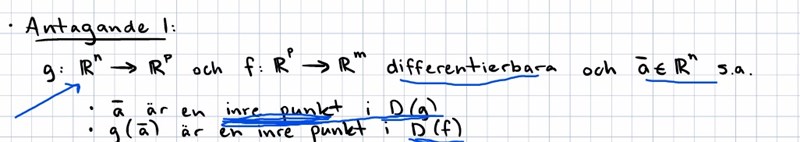 · Antagande 1:
g: ℝⁿ → ℝᵖ och f: ℝᵖ → ℝᵐ differentierbara och ā ∈ ℝⁿ s.a.
· ā är en inre punkt i D(g)
· g(ā) är en inre punkt i D(f)